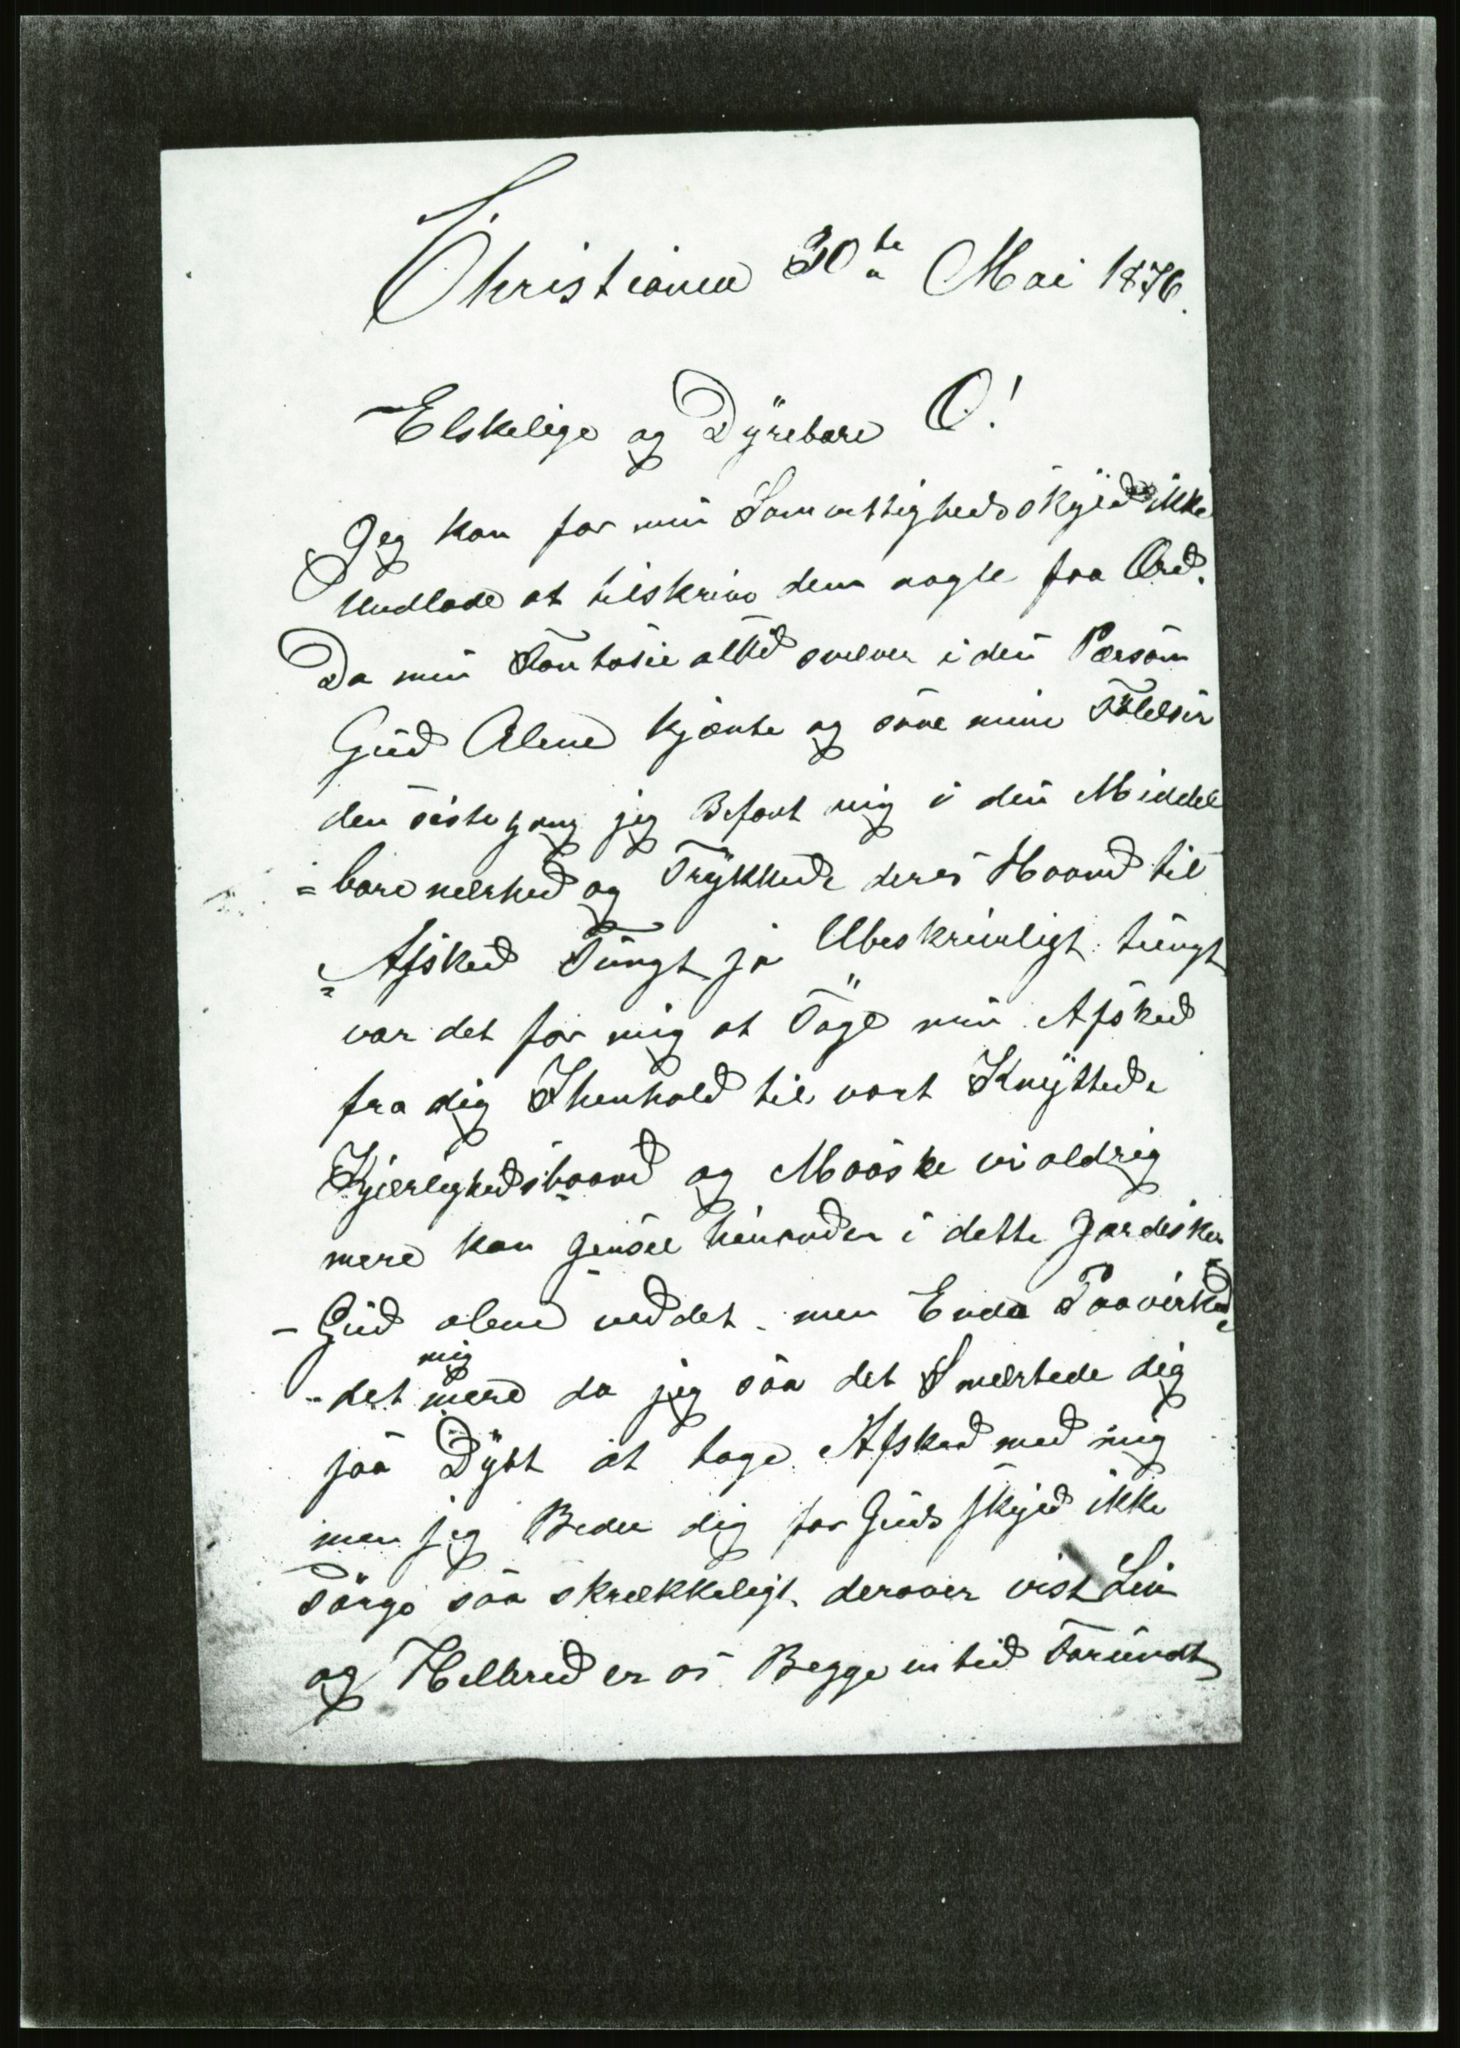 Christiania 30te Mai 1876.
Elskelige og Dyrebare O!
Jeg kan for min Samvittigheds skyld ikke
Undlade at tilskrive dem nogle faa Ord.
Da min Fantasie altid svæver i din Person
Gud Alene kjente og saae mine Følelser
den siste gang jeg Befant mig i din Middel
=bare nærhed og Trykkede deres Haand til
Afsked Tungt ja Ubeskriveligt tungt
var det for mig at Tage min Afsked
fra dig Ihenhold til vort Knyttede
Kjærlighedsbaand og Maaske vi aldrig
mere kan gensee hinanden i dette Jordiske
- Gud alene ved det. men Enda Paavirkede
det mig mere da jeg saa det Smertede dig
saa Dybt at tage Afsked med mig
men jeg Beder dig for Guds skyld ikke
sørge saa skrækkeligt derover vist Liv
og Helbred er os Begge en tid Forundt